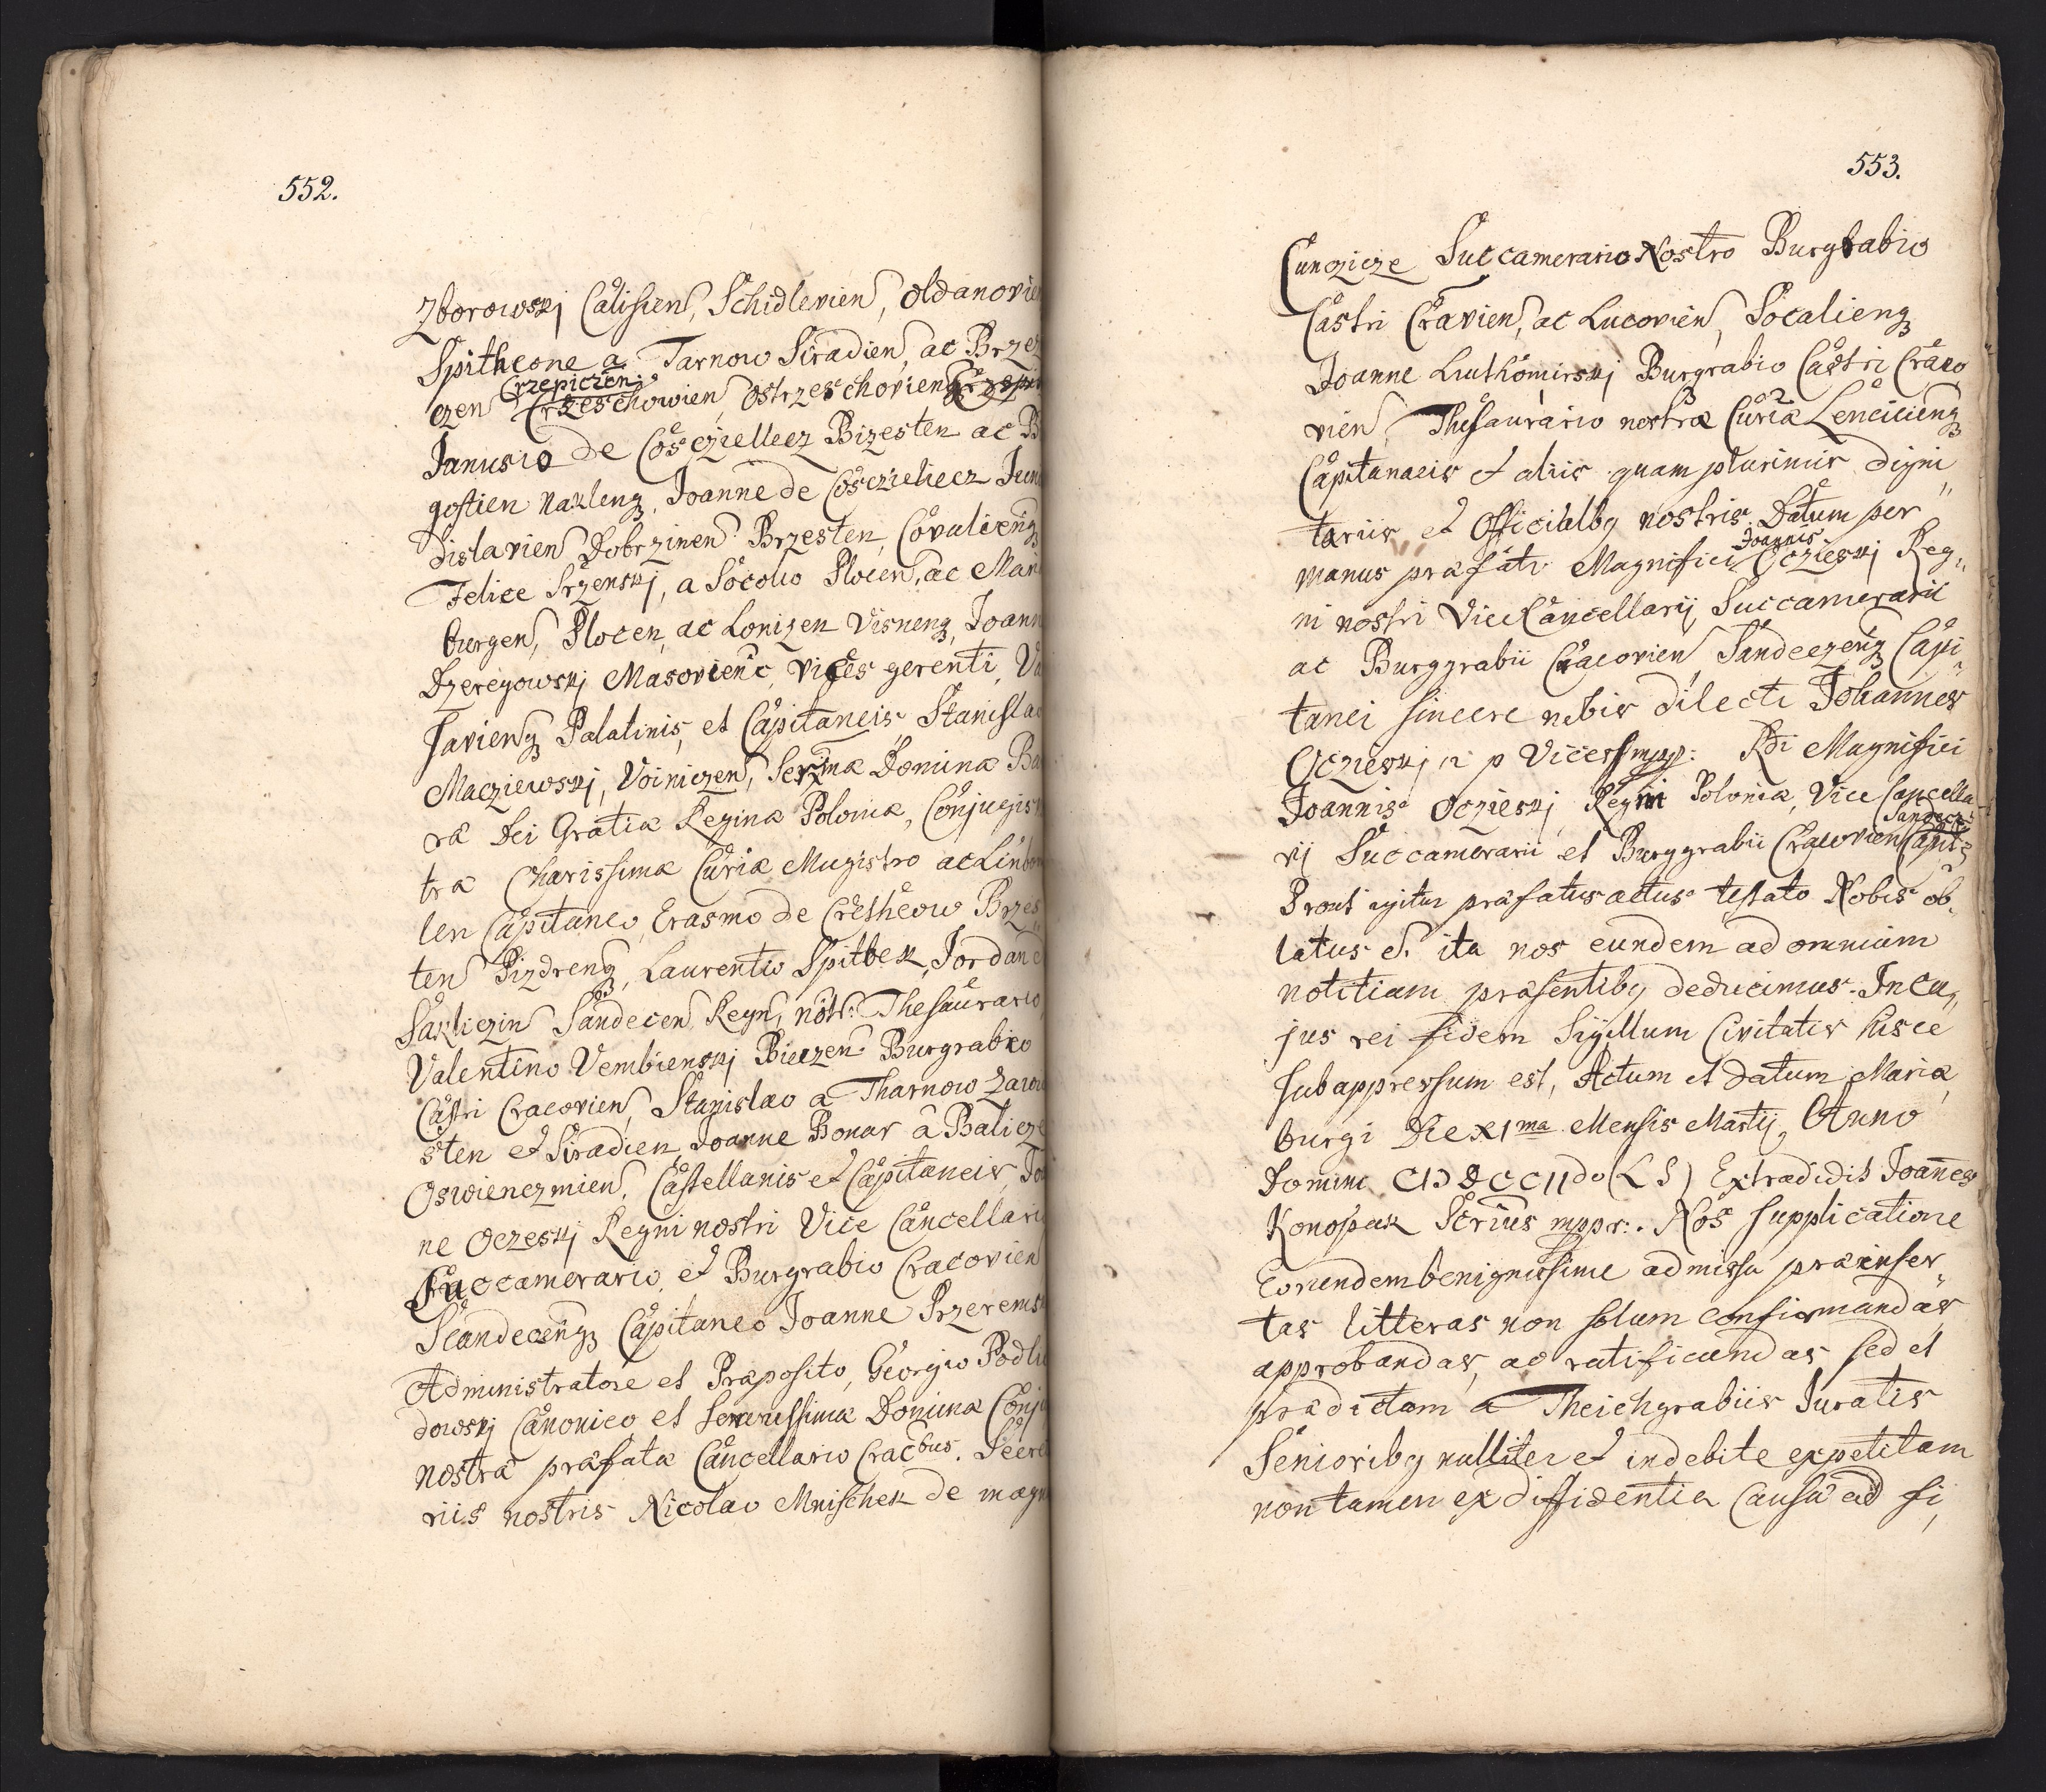 552.
Zborowskj Calisien, Schidlevien, oldanovien
Spithcone a Tarnow Siradien, ac Brzez
Crzepicien
czen Crzeschowien ostrzeschovien
Janusio de Cosczielecz Bizesten ac B
gostien naklenq, Joanne de Cosczieliecz Juni
dislavien Dobrzinen Brzesten, Covalienq
Felice Srzenskj, a Socolio Plocen, ac Mari
burgen, Plocen, ac Lonizen Visnenq, Joann
Dzeregowskj Masovienc, vices gerenti, Va
Savienq Palatinis, et Capitaneis Stanislao
Macziewskj, Voiniczen, Serma Domina Ba
ra Dei Gratia Regina Polonia, Conjugis n
tra Charissima Curia Magistro ac Linbom
len Capitaneo, Erasmo de Cretheow Brzes
ten Pizdrenq, Laurentio Spitbek, Jordan
Sakliczin Sandecen Regn, notr: Thesaurario,
Valentino Vembienskj Bieczen Burgrabio
Castri Cracovien, Stanislao a Tharnow Zawi
sten et Siradien, Joanne Bonar a Balicze
Oswienczmien, Castellanis et Capitaneis, Jo
ne Oczeskj Regni nostri Vice Cancellario
Succamerario, et Burgrabio Cracovien
Scandecenq Capitaneo Joanne Przerems
Administratore et Praposito, Georgio Podlu
dowskj Canonico et Serenissima Domina Conju
nostra prafata Cancellario Cracbus. Secre
riis nostris Nicolao Mnischek de magn
553.
Cunczicze Succamerario Nostro Burgrabio
Castri Cravien, ac Lucovien, Socalienq
Joanne Luthomirskj Burgrabio Castri Craco
vien, Thesaurario nostra Curia Lencicienq
Capitanaeis et aliis quam plurimis digni„
tariis et Officialbq nostris. Datum per
Joannis
manus prafati Magnifici Oczieskj Reg„
ni nostri Vice Cancellarij, Succamerarii
ac Burggrabii Cracovien, Sandeczenq Capi„
tanei sincere nobis dilecti Johannes
Oczieskj R P Vicessmpp: Rdi Magnifici
Joannis Oczieskj Regni Polonia, Vice Cancella„
Sandecz
rij Succamerarii et Burggrabii Cracovien Capit
Prout igitur prafatus actus testato Nobis ob„
latus e. ita nos eundem ad omnium
notitiam prasentibq deducimus. In cu„
jus rei fidem Sigillum Civitatis hisce
subappressum est, Actum et datum Maria„
burgi Die X1ma Mensis Martij, Anno
Domini CIↃ DCCIIdo (L S) Extradidit Joanes
Konopak Scrius mppr:. Nos supplicatione
Eorundem benignissime admissa prainser„
tas litteras non solum confirmandas
approbandas, ac ratificandas sed et
pradictam a Theichgrabiis Juratis
Senioribq nulliter et indebite expetitam
non tamen ex diffidentia Causa ad fi„